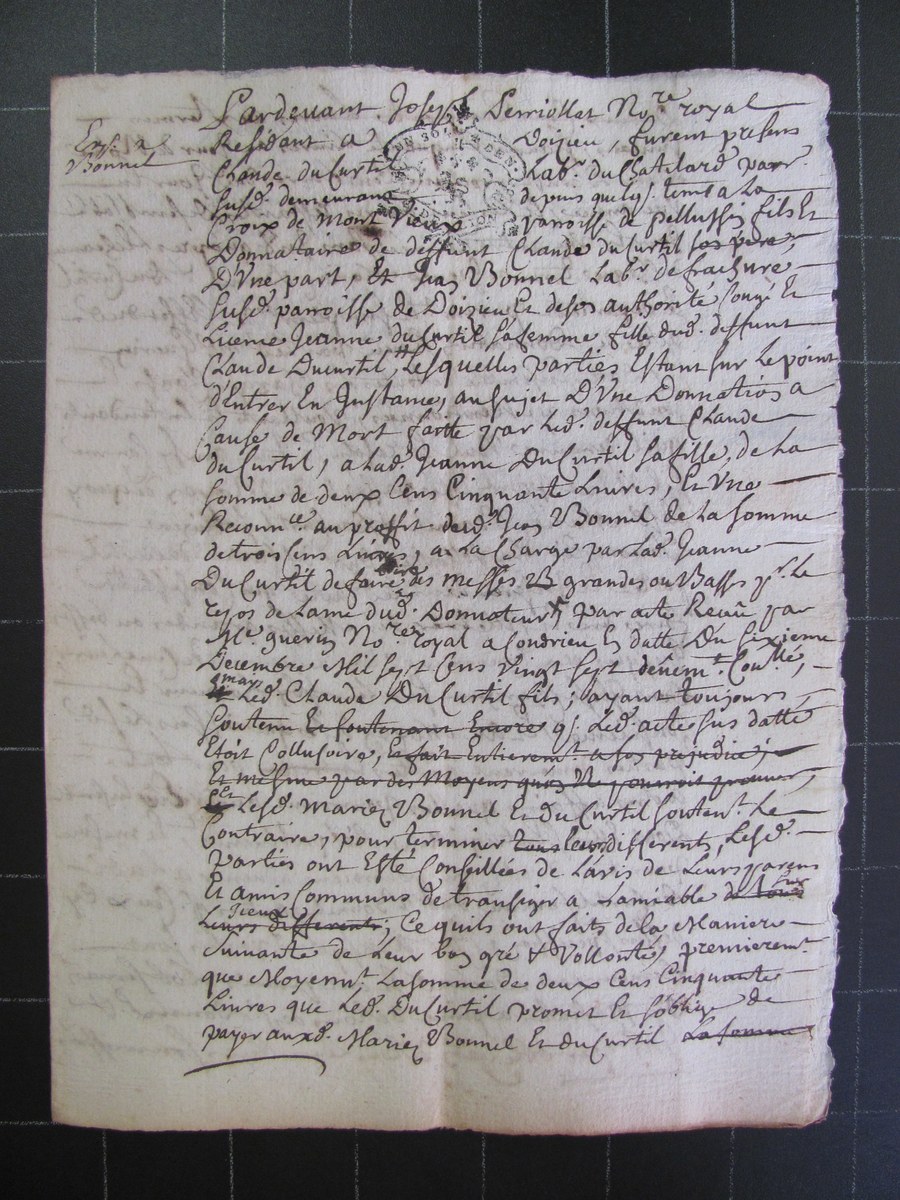 Pardevant Joseph Perriollat No.re royal
Residant a Doizieu, furent presens
Exp. a
Bonnel
Claude du Curtil Lab.r du Chatelard parr.
susd. demeurant depuis quelq. tems a La
Croix de Mont Vieux parroisse de pellussin fils Et
Donnataire de deffunt Claude du Curtil son pere,
D'Une part, Et Jean Bonnel Lab.r de frachure
susd. parroisse de Doizieu Et de son authorité Congé Et
Licence Jeanne du Curtil sa femme fille dud. deffunt
Claude Ducurtil, Lesquelles parties Estant sur Le point
d'Entrer En Instance, au sujet D'Une Donnation a
Cause de Mort faitte par Led. deffunt Claude
du Curtil, a Lad. Jeanne Du Curtil sa fille, de La
somme de deux Cens Cinquante Livres, Et Une
Reconn.ce au proffit dud. Jean Bonnel de La somme
de trois Cens Livres, a La Charge par Lad. Jeanne
Du Curtil de faire dire des messes grandes ou Basses p.r Le
repos de Lame dud. Donnateur, par acte Receu par
M.e guerin No.re royal a Condrieu En datte Du sixieme
Decembre Mil sept Cens Vingt sept deüem.t Coullé,
mais Led. Claude Du Curtil fils; ayant toujours
soutenu Et soutenant Encore q. Led. acte sus datté
Etoit Collusoire, Et fait Entierem.t a son prejudice;
Et mesme par des Moyens quon Ne pourroit prouver,
Et Lesd. Mariez Bonnel Et Du Curtil souten.t Le
Contraire, pour terminer tous Leurs differents, Lesd.
parties ont Esté Conseillées de L'avis de Leurs parens
Et amis Communs de transiger a Lamiable sur
Leurs differents; Ce quils ont faits de la Maniere
suivante de Leur bon gré & Vollonté, premierem.t
que Moyen.t La somme de deux Cens Cinquante
Livres que Led. Du Curtil promet Et s'oblige de
payer auxd. Mariez Bonnel Et du Curtil La somme